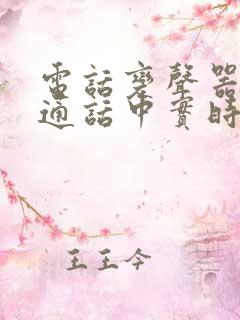 電話變聲器
通話中實時
王王今